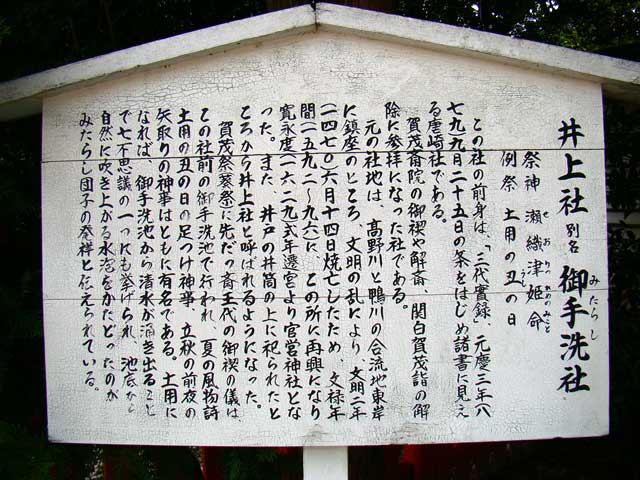 井上社 別名 御手洗社
みたらし
祭神 瀬織津姫命
せおりつひめのみこと
例祭 土用の丑の日
この社の前身は、「三代實録」、元慶三年八
七九九月二十五日の条をはじめ諸書に見え
る唐崎社である。
賀茂斎院の御禊や解斎、関白賀茂詣の解
除に参拝になった社である。
元の社地は、高野川と鴨川の合流地東岸
に鎮座のところ、文明の乱により、文明二年
(一四七〇)六月十四日焼亡したため、文禄年
間(一五九二～九六)に、この所に再興になり
寛永度(一六二九)式年遷宮より官営神社とな
った。また、井戸の井筒の上に祀られたと
ころから井上社と呼ばれるようになった。
賀茂祭(葵祭)に先だつ斎王代の御禊の儀は、
この社前の御手洗池で行われ、夏の風物詩
土用の丑の日の足つけ神事、立秋の前夜の
矢取りの神事はともに有名である。土用に
なれば、御手洗池から清水が湧き出ること
で七不思議の一つにも挙げられ、池底から
自然に吹き上がる水泡をかたどったのが
みたらし団子の発祥と伝えられている。